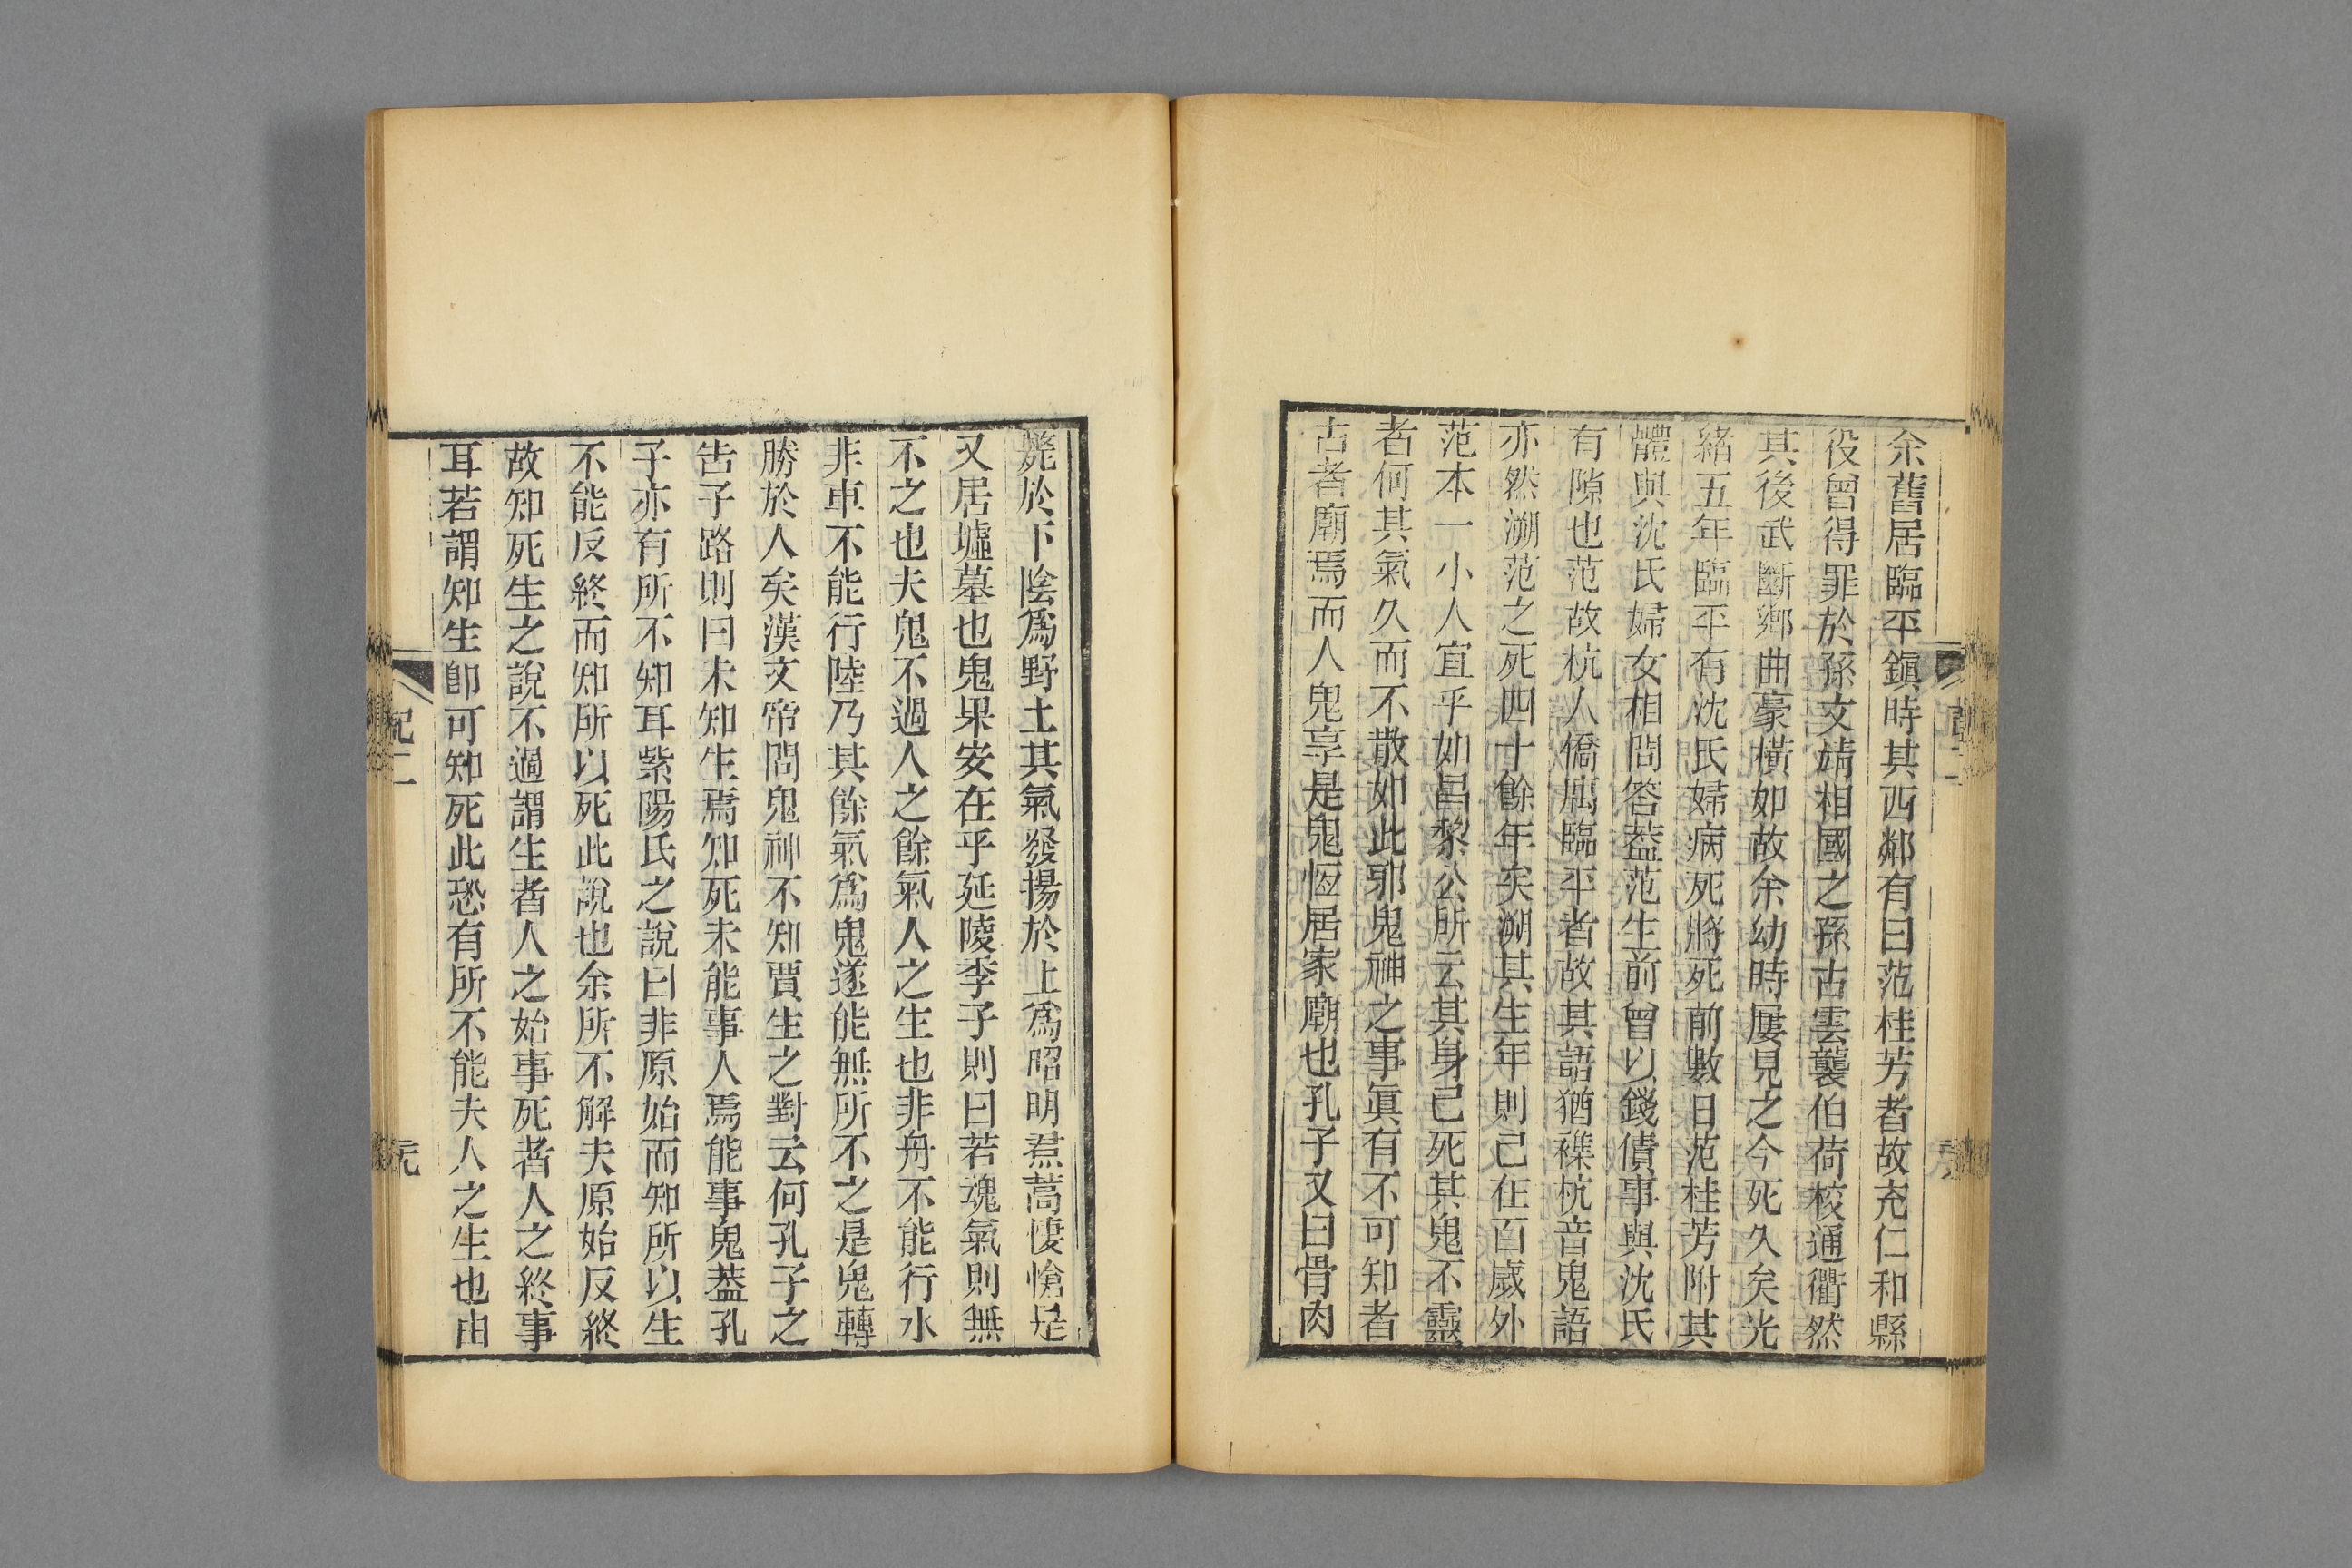 余舊居臨平鎮時其西鄰有曰范桂芳者故充仁和縣
役曾得罪於孫文靖相國之孫古雲襲伯荷校通衢然
其後武斷鄉曲豪橫如故余幼時屢見之今死久矣光
緒五年臨平有沈氏婦病死將死前數日范桂芳附其
體與沈氏婦女相問答葢范生前曾以錢債事與沈氏
有隙也范故杭人僑寓臨平者故其語猶襍杭音鬼語
亦然溯范之死四十餘年矣溯其生年則已在百歲外
范本一小人宜乎如昌黎公所云其身已死其鬼不靈
者何其氣久而不散如此邪鬼神之事眞有不可知者
古者廟焉而人鬼享是鬼恆居家廟也孔子又曰骨肉
斃於下陰爲野土其氣發揚於上爲昭明焄蒿悽愴是
又居墟墓也鬼果安在乎延陵季子則曰若魂氣則無
不之也夫鬼不過人之餘氣人之生也非舟不能行水
非車不能行陸乃其餘氣爲鬼遂能無所不之是鬼轉
勝於人矣漢文帝問鬼神不知賈生之對云何孔子之
告子路則曰未知生焉知死未能事人焉能事鬼葢孔
子亦有所不知耳紫陽氏之說曰非原始而知所以生
不能反終而知所以死此說也余所不解夫原始反終
故知死生之說不過謂生者人之始事死者人之終事
耳若謂知生卽可知死此恐有所不能夫人之生也由
記二